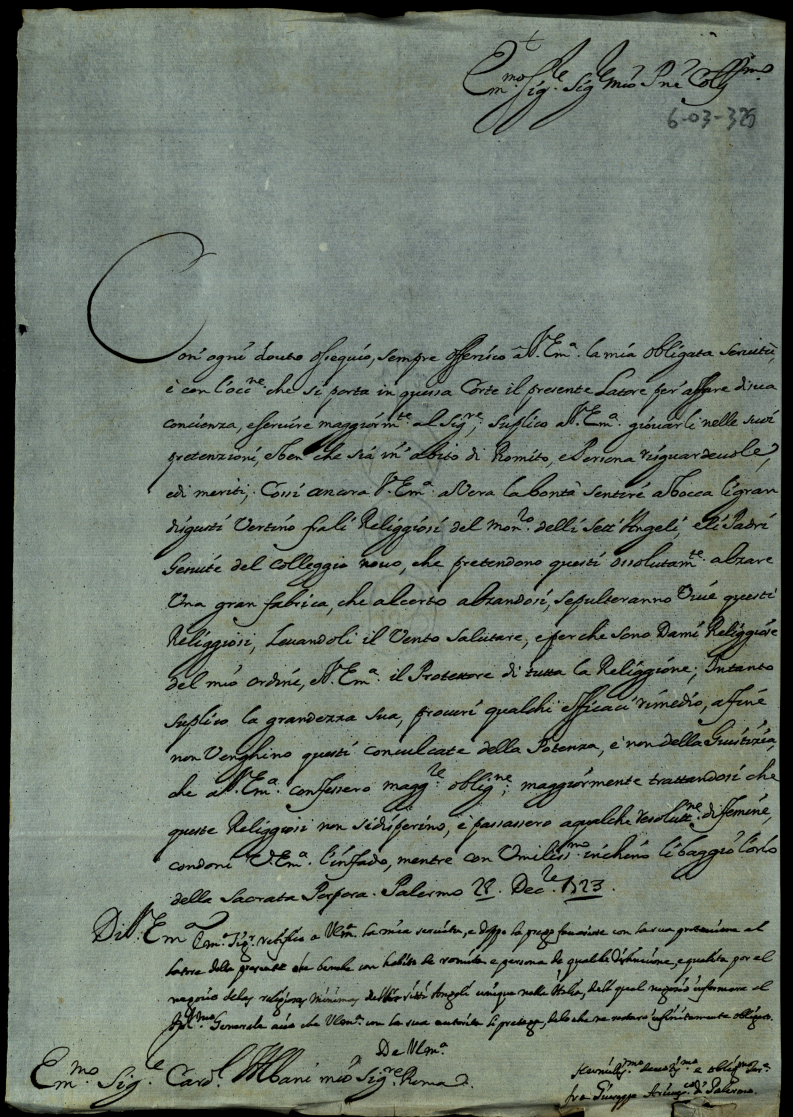 Em.mo Sig.re Sig.re mio P.ne Col.mo
6-03-325
Con' ogni douto ossequio, sempre offerisco a V. Em.a la mia obligata seruitù,
è con l'occ.ne che si porta in questa Corte il presente Latore per affare di sua
concienza, e seruire maggiorm.te al Sig.re; suplico a V. Em.a giouarli nelle suoi
pretenzioni, e ben che sia in' abito di Romito, e Persona risguardeuole,
e di meriti; Cossi ancora V. Em.a aVera la bontà sentire a bocca li gran
disgusti Vertino fra li Religgiosi del Mon.ro delli Sett' Angeli, e li Padri
Gesuite del Colleggio nouo, che pretendono questi assolutam.te alzare
Una gran fabrica, che al certo alzandosi, sepulteranno Viue questi
Religgiosi, Leuandoli il Vento salutare, e perche sono Dami Religgiose
del mio ordine, e V. Em.a il Protettore di tutta la Religgione; Intanto
suplico la grandezza sua, proueri qualchi efficaci rimedio, a fine
non Venghino questi conculcate della Potenza, è non della Giustizia,
che a V. Em.a confessero magg.re oblig.ne; maggiormente trattandosi che
queste Religgiosi non si disperino, è passassero a qualche resolutt.ne di femine,
condoni V. Em.a l'infado, mentre con Umiliss.mo inchino li baggio l'orlo
della Sacrata Porpora. Palermo 28. Dec.re 1723.
Di V. Em.a
Em.o Sig.r retifico a V Em.a la mia seruitu, e doppo la prego fauorisse con la sua protezzione al
latore della presente che benche con habito de romita e persona de qualche distinzione, e qualita por el
negocio delas religiosas minimas delli sitti Angoli unique nella Italia, dela qual negozio informara al
Generale acio che V Em.a con la sua autorita li protega, delo che ne restara infinitamente obligato.
De V Em.a
Em.mo Sig.re Card.l Albani mio Sig.re Roma
fra Giuseppe Arciuesc.o di Palermo.